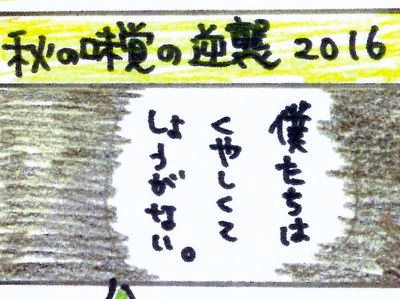 秋の味覚の逆襲 2016
僕たちは
くやしくて
しょうがない。